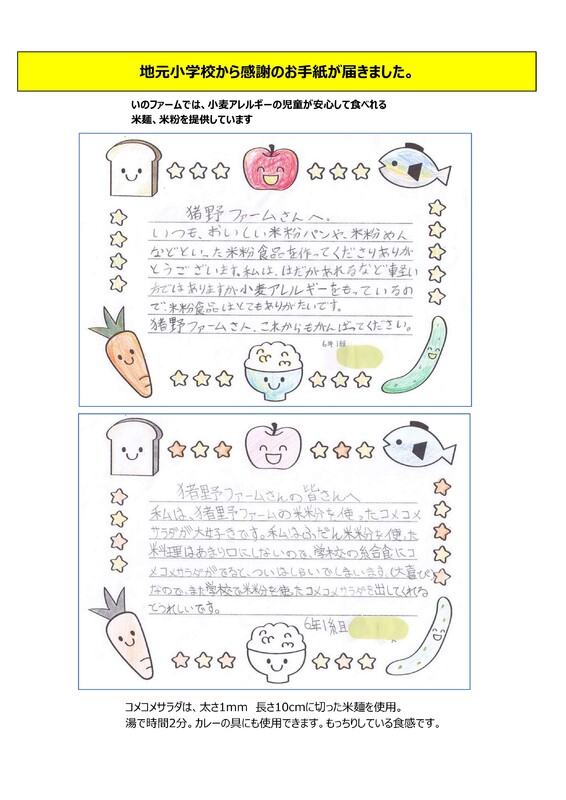 地元小学校から感謝のお手紙が届きました。
いのファームでは、小麦アレルギーの児童が安心して食べれる
米麺、米粉を提供しています
猪野ファームさんへ。
いつも、おいしい米粉パンや、米粉めん
などといった米粉食品を作ってくださりありが
とうございます。私は、はだがあれるなど軽い
方ではありますが小麦アレルギーをもっているの
で、米粉食品はとてもありがたいです。
猪野ファームさん、これからもがんばってください。
6年1組
猪野ファームさんの皆さんへ
私は、猪野ファームの米粉を使ったコメコメ
サラダが大好きです。私はふだん米粉を使った
米料理はあまり口にしないので、学校の給食にコ
メコメサラダがでると、ついはしゃいでしまいます。(大喜び)
なので、また学校で米粉を使ったコメコメサラダを出してくれる
とうれしいです。
6年1組
コメコメサラダは、太さ1mm 長さ10cmに切った米麺を使用。
湯で時間2分。カレーの具にも使用できます。もっちりしている食感です。